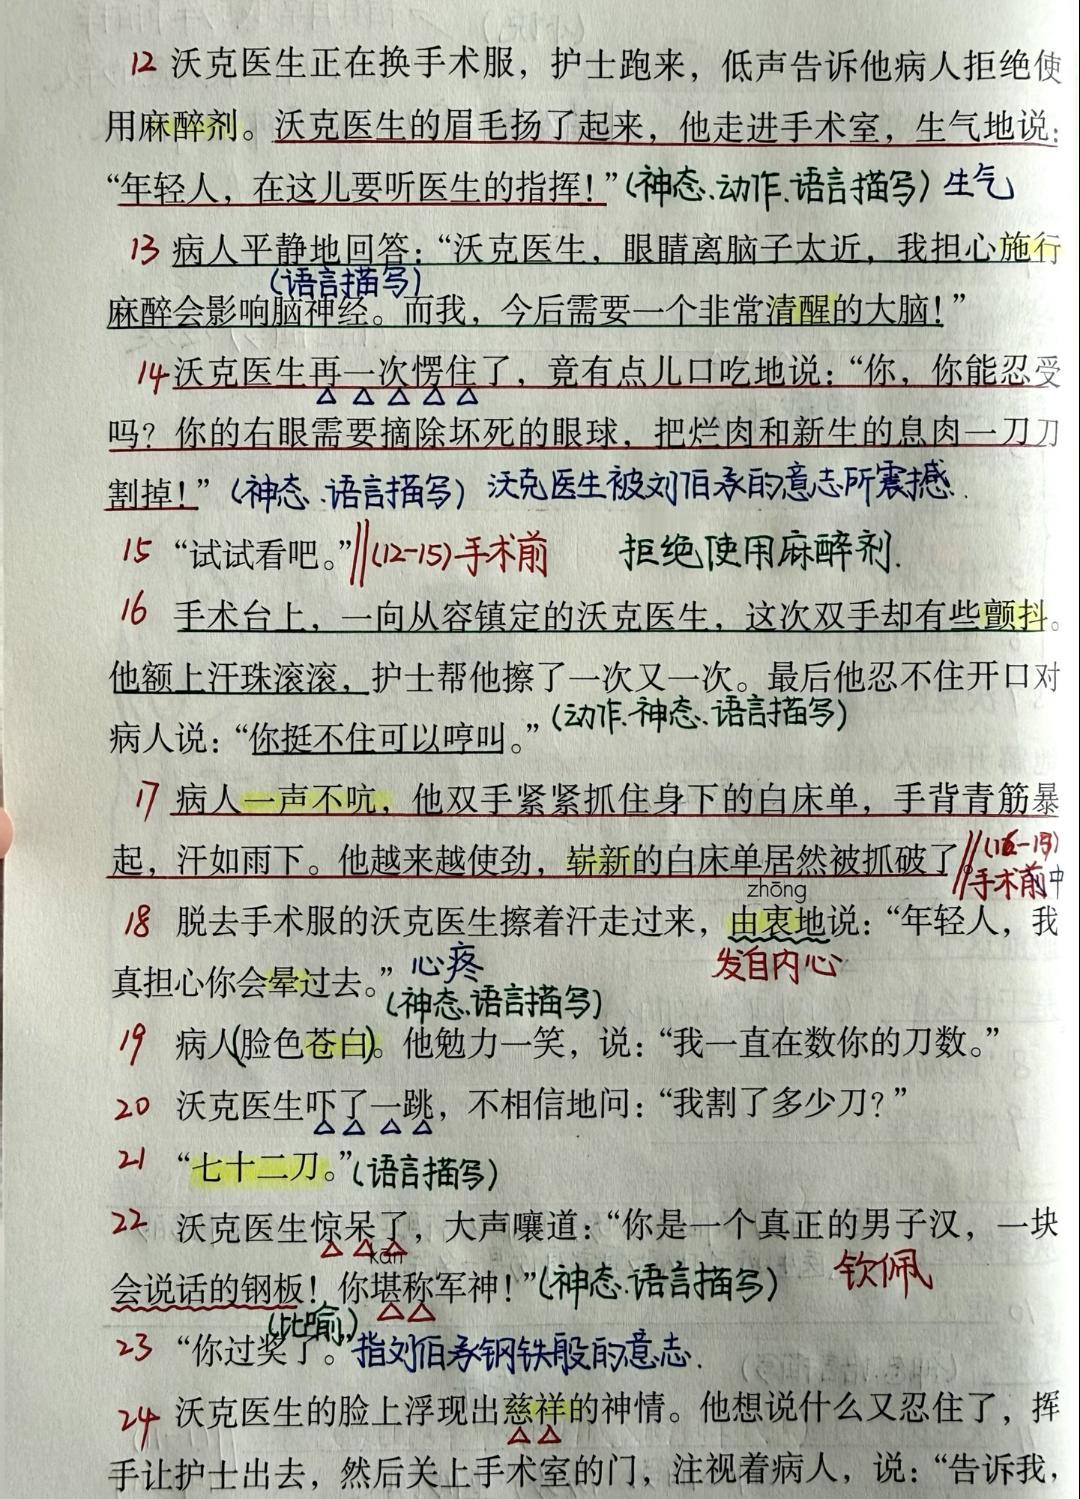 12 沃克医生正在换手术服，护士跑来，低声告诉他病人拒绝使
用麻醉剂。沃克医生的眉毛扬了起来，他走进手术室，生气地说：
“年轻人，在这儿要听医生的指挥！”(神态、动作、语言描写) 生气
13 病人平静地回答：“沃克医生，眼睛离脑子太近，我担心施行
(语言描写)
麻醉会影响脑神经。而我，今后需要一个非常清醒的大脑！”
14 沃克医生再一次愣住了，竟有点儿口吃地说：“你，你能忍受
吗？你的右眼需要摘除坏死的眼球，把烂肉和新生的息肉一刀刀
割掉！”(神态、语言描写) 沃克医生被刘伯承的意志所震撼.
15 “试试看吧。”∥(12-15)手术前 拒绝使用麻醉剂.
16 手术台上，一向从容镇定的沃克医生，这次双手却有些颤抖。
他额上汗珠滚滚，护士帮他擦了一次又一次。最后他忍不住开口对
病人说：“你挺不住可以哼叫。”(动作、神态、语言描写)
17 病人一声不吭，他双手紧紧抓住身下的白床单，手背青筋暴
起，汗如雨下。他越来越使劲，崭新的白床单居然被抓破了。∥
手术中
zhōng
18 脱去手术服的沃克医生擦着汗走过来，由衷地说：“年轻人，我
真担心你会晕过去。”心疼 发自内心
(神态、语言描写)
19 病人(脸色苍白)。他勉力一笑，说：“我一直在数你的刀数。”
20 沃克医生吓了一跳，不相信地问：“我割了多少刀？”
21 “七十二刀。”(语言描写)
22 沃克医生惊呆了，大声嚷道：“你是一个真正的男子汉，一块
kān
会说话的钢板！你堪称军神！”(神态、语言描写) 钦佩
(比喻)
23 “你过奖了。”指刘伯承钢铁般的意志.
24 沃克医生的脸上浮现出慈祥的神情。他想说什么又忍住了，挥
手让护士出去，然后关上手术室的门，注视着病人，说：“告诉我，